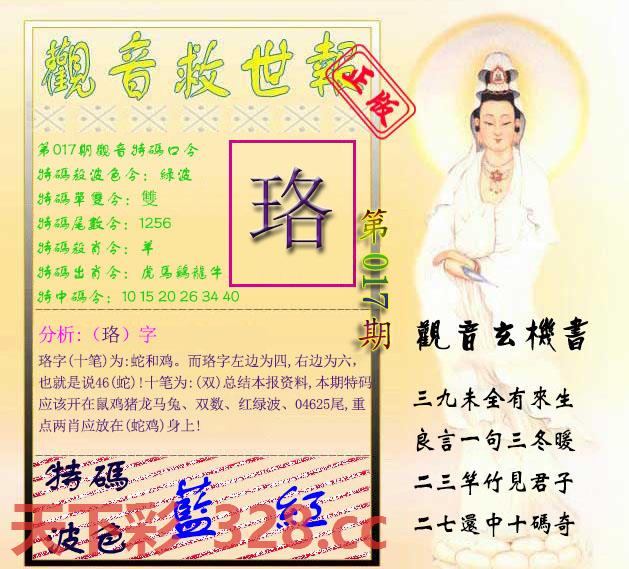 觀音救世報
正版
第017期觀音特碼口令
特碼殺波色令：綠波
特碼單雙令：雙
特碼尾數令：1256
特碼殺肖令：羊
特碼出肖令：虎馬鷄龍牛
特中碼令：10 15 20 26 34 40
珞
第017期
分析:（珞）字
珞字(十笔)为:蛇和鸡。而珞字左边为四,右边为六，
也就是说46(蛇)!十笔为:(双)总结本报资料,本期特码
应该开在鼠鸡猪龙马兔、双数、红绿波、04625尾,重
点两肖应放在(蛇鸡)身上!
特碼
波色
藍 紅
天下彩328.cc
觀音玄機書
三九未全有來生
良言一句三冬暖
二三竿竹見君子
二七還中十碼奇